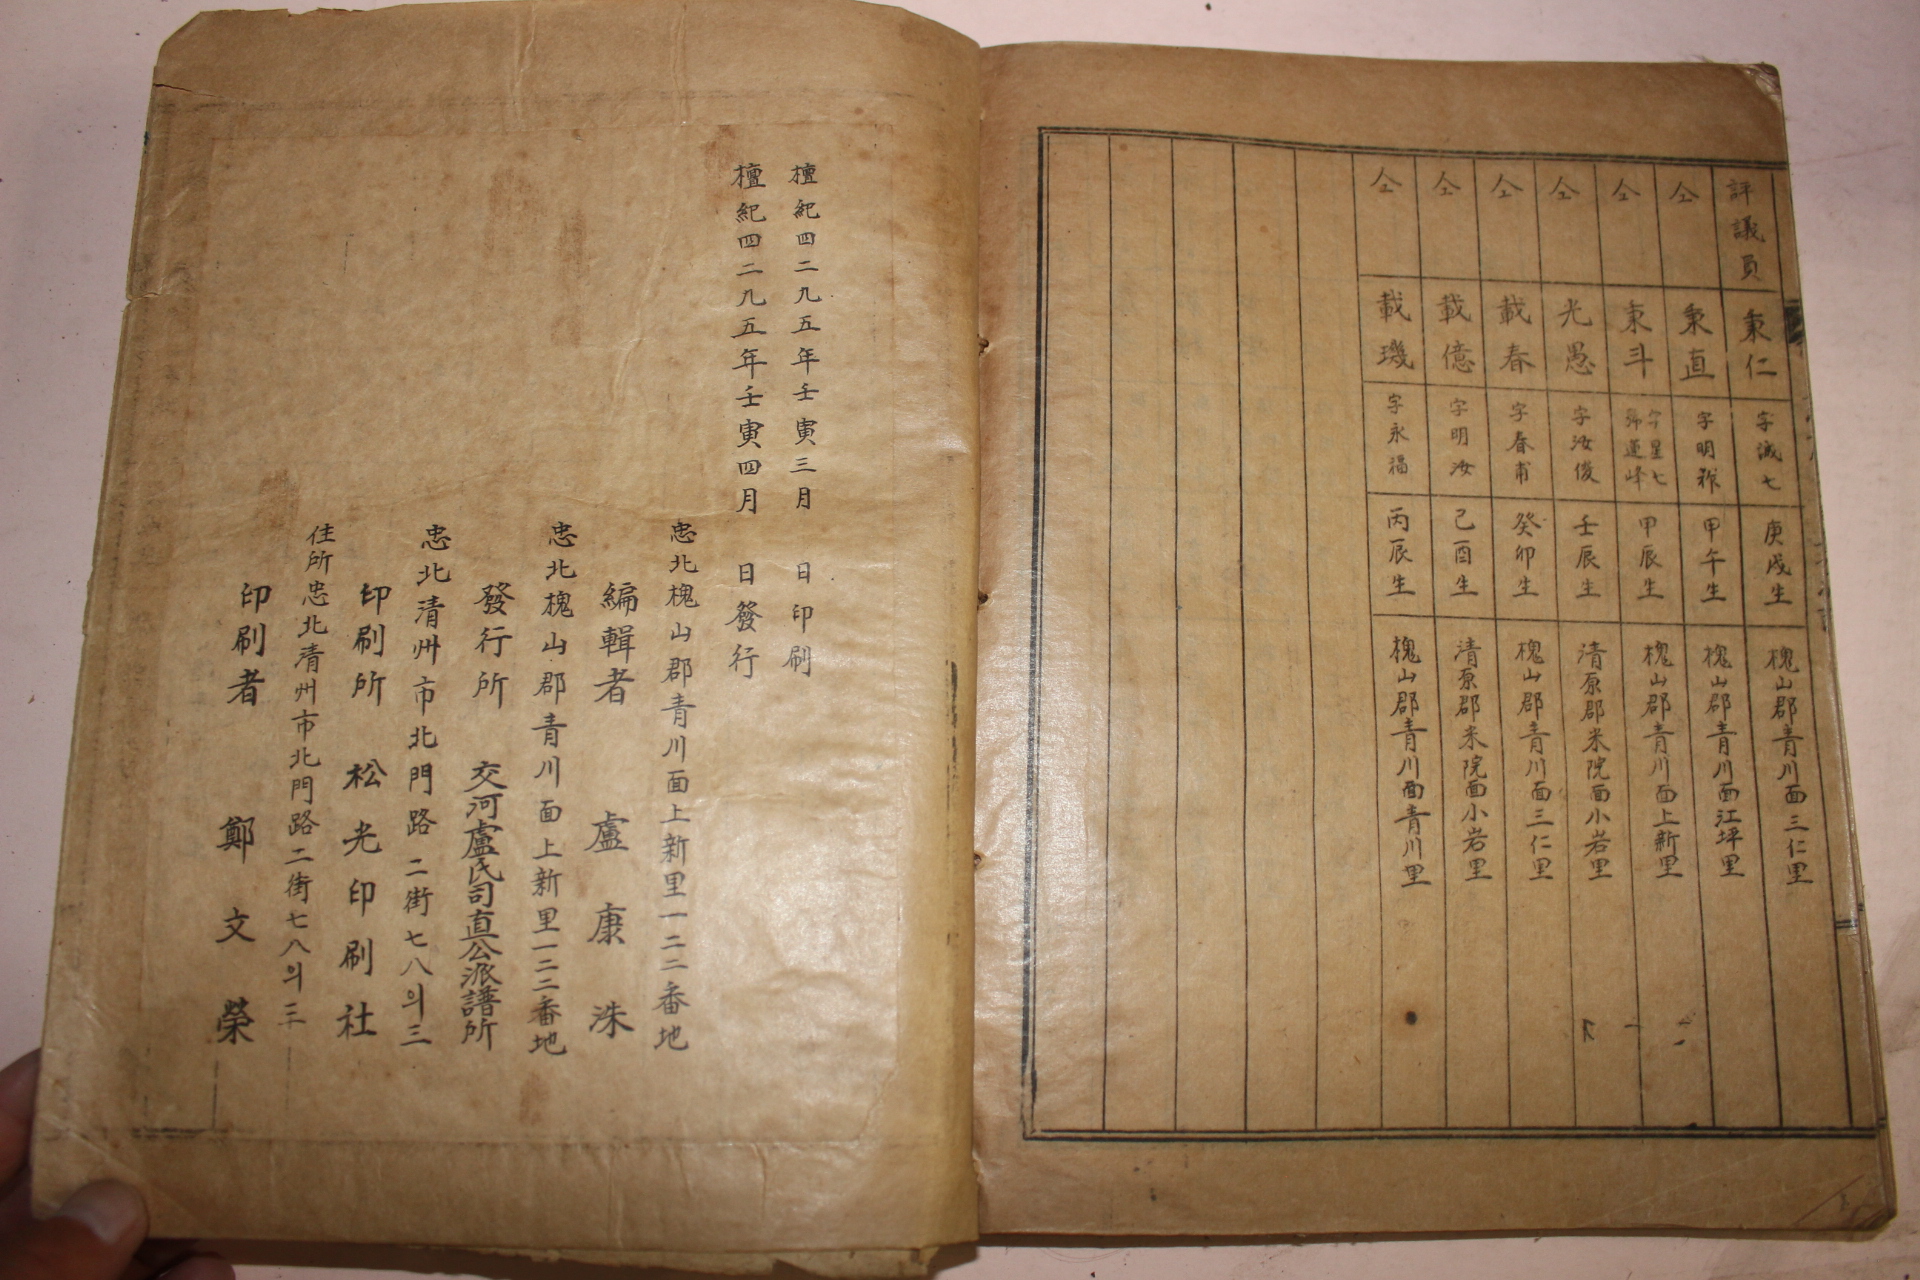 評議員 秉仁 字誠七 庚戌生 槐山郡青川面三仁里
仝 秉直 字明 甲午生 槐山郡青川面江坪里
仝 秉斗 字星七 號蓮峰 甲辰生 槐山郡青川面上新里
仝 光愚 字汝俊 壬辰生 清原郡米院面小岩里
仝 載春 字春甫 癸卯生 槐山郡青川面三仁里
仝 載億 字明汝 己酉生 清原郡米院面小岩里
仝 載璣 字永福 丙辰生 槐山郡青川面青川里
檀紀四二九五年壬寅三月 日印刷
檀紀四二九五年壬寅四月 日發行
忠北槐山郡青川面上新里一二二番地
編輯者 盧康洙
忠北槐山郡青川面上新里一二二番地
發行所 交河盧氏司直公派譜所
忠北清州市北門路二街七八의三
印刷所 松光印刷社
住所忠北清州市北門路二街七八의三
印刷者 鄭文榮